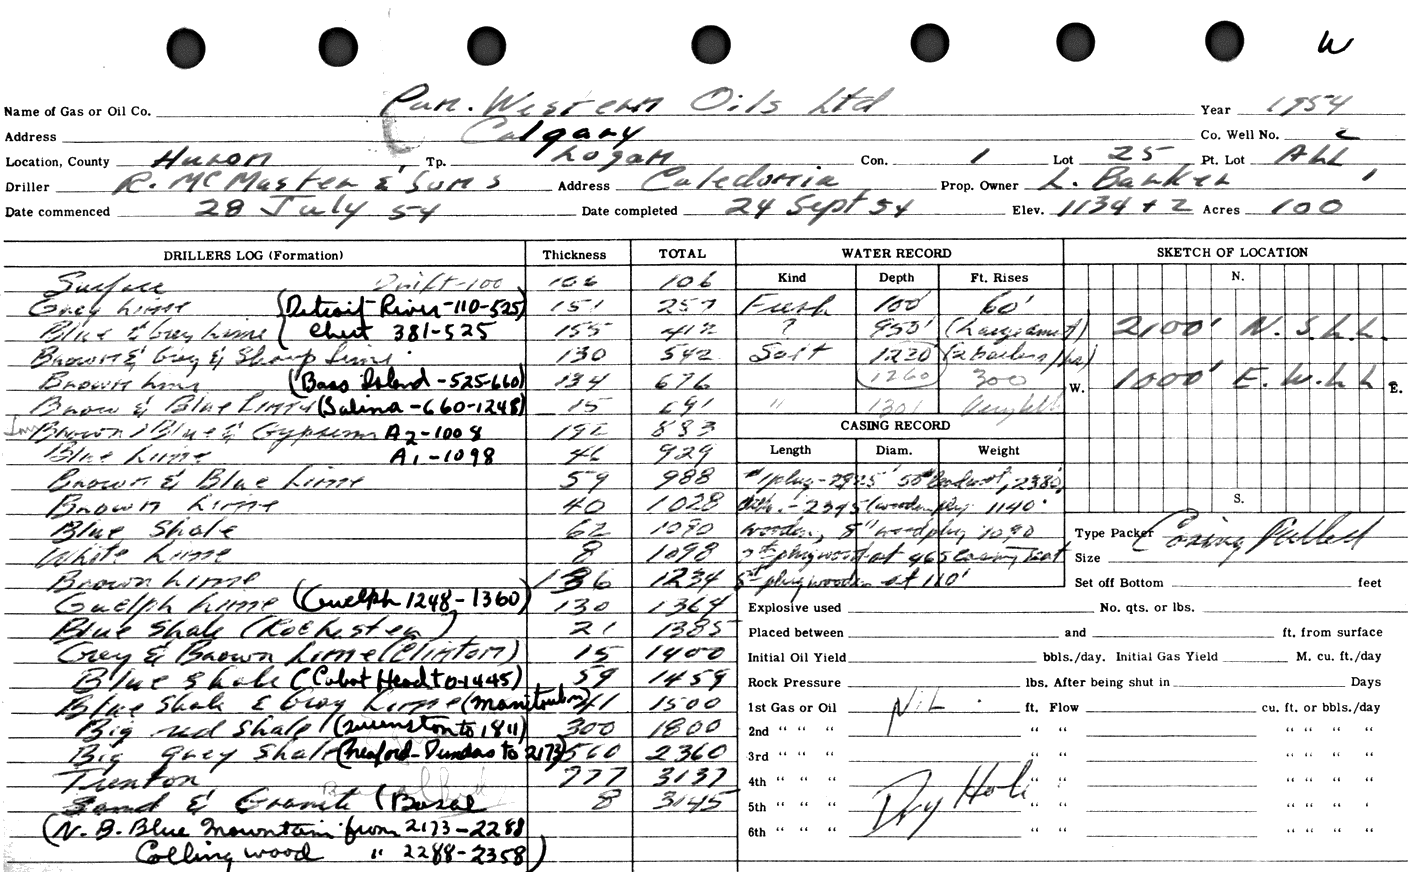 W
Name of Gas or Oil Co. Can. Western Oils Ltd Year 1954
Address Calgary Co. Well No. 2
Location, County Huron Tp. Logan Con. 1 Lot 25 Pt. Lot ALL
Driller R. McMaster & Sons Address Caledonia Prop. Owner L. Barker
Date commenced 28 July 54 Date completed 24 Sept 54 Elev. 1134 + 2 Acres 100
DRILLERS LOG (Formation) Thickness TOTAL WATER RECORD SKETCH OF LOCATION
Kind Depth Ft. Rises N.
Surface Drift-100 106 106
Grey Lime (Detroit River-110-525) 151 257 Fresh 100' 60'
Blue & Grey Lime (Chert 381-525 155 412 ? 953' (Large amt) 2100' N. S.L.L.
Brown & Gray & Sharp Lime 130 542 Salt 1220' (2 bailers/hr)
Brown Lime (Bass Island-525-660) 134 676 1260 300 W. 1000' E. W.L.L E.
Brown & Blue Limey (Salina-660-1248) 15 691 " 1301
Brown, Blue & Gypsum A2-1008 192 883 CASING RECORD
Blue Lime A1-1098 46 929 Length Diam. Weight
Brown & Blue Lime 59 988 #1 plug-2925' 2380,
Brown Lime 40 1028 2395 (wooden plug 1140' S.
Blue Shale 62 1090 wooden, 8" wood plug 1090
White Lime 8 1098 plug wood at 465 casing seat
Brown Lime 136 1234 5th plug wooden at 110'
Type Packer Casing Pulled
Size
Set off Bottom feet
Guelph Lime (Guelph 1248-1360) 130 1364 Explosive used No. qts. or lbs.
Blue Shale (Rochester) 21 1385 Placed between and ft. from surface
Grey & Brown Lime (Clinton) 15 1400 Initial Oil Yield bbls./day. Initial Gas Yield M. cu. ft./day
Blue Shale (Cabot Head to 1445) 59 1459 Rock Pressure lbs. After being shut in Days
Blue Shale & Gray Lime (Manitoulin) 41 1500 1st Gas or Oil NiL ft. Flow cu. ft. or bbls./day
Big red Shale (Queenston to 1811) 300 1800 2nd " " " " " " " " "
Big grey Shale (Meaford-Dundas to 2173) 560 2360 3rd " " " " " " " " "
Trenton 777 3137 4th " " " Dry Hole " " " " " "
Sand & Granite (Basal 8 3145 5th " " " " " " " " '
(N.B. Blue Mountain from 2173-2288 6th " " " " " " " " "
Collingwood " 2288-2358)